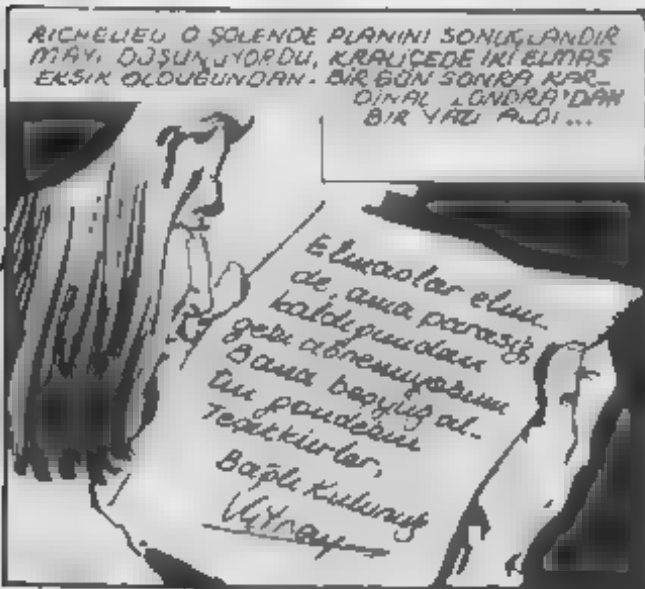 RICHELIEU O ŞÖLENDE PLANINI SONUÇLANDIR
MAYI DÜŞÜNÜYORDU, KRALİÇEDE İKİ ELMAS
EKSİK OLDUĞUNDAN. BİR GÜN SONRA KAR_
DİNAL LONDRA'DAN
BİR YAZI ALDI...
Elmaslar elim_
de, ama parasız
kaldığımdan
geri dönemiyorum
Bana beşyüz al_
tın gönderin
Teşekkürler,
Bağlı Kulunuz